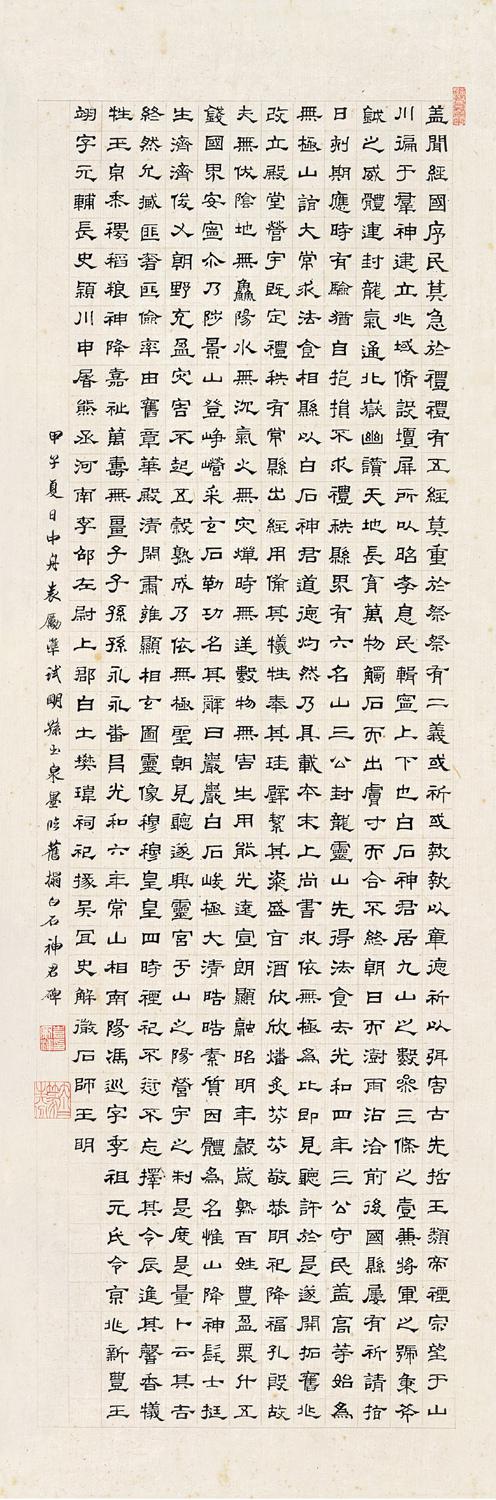 盖聞經國序民莫急於禮禮有五經莫重於祭祭有二義或祈或報報以章德祈以弭害古先哲王類帝禋宗望于山
川徧于羣神建立兆域脩設壇屏所以昭孝息民輯寧上下也白石神君居九山之數參三條之壹兼將軍之號秉斧
鉞之威體連封龍氣通北嶽幽讚天地長育萬物觸石而出膚寸而合不終朝日而澍雨沾洽前後國縣屢有祈請指
日刻期應時有驗猶自挹損不求禮秩縣界有六名山三公封龍靈山先得法食去光和四年三公守民盖高等始為
無極山詣大常求法食相縣以白石神君道德灼然乃具載本末上尚書求依無極為比即見聽許於是遂開拓舊兆
改立殿堂營宇既定禮秩有常縣出經用備其犧牲奉其珪璧絜其粢盛旨酒欣欣燔炙芬芬敬恭明祀降福孔殷故
天無伏陰地無鱻陽水無沉氣火無灾燀時無逆數物無害生用能光遠宣朗顯融昭明年穀歲熟百姓豐盈粟升五
錢國界安寧尒乃陟景山登崢嶸采玄石勒功名其辭曰巖巖白石峻極大清晧晧素質因體為名惟山降神髦士挺
生濟濟俊乂朝野充盈灾害不起五穀熟成乃依無極聖朝見聽遂興靈宮于山之陽營宇之制是度是量卜云其吉
終然允臧匪奢匪儉率由舊章華殿清閑肅雍顯相玄圖靈像穆穆皇皇四時禋祀不愆不忘擇其令辰進其馨香犧
牲玉帛黍稷稻粮神降嘉祉萬壽無畺子子孫孫永永番昌光和六年常山相南陽馮巡字季祖元氏令京兆新豐王
翊字元輔長史潁川申屠熊丞河南李邵左尉上郡白土樊瑋祠祀掾吳宜史解徵石師王明
甲子夏日中舟袁勵準試明孫玉泉墨臨舊搨白石神君碑